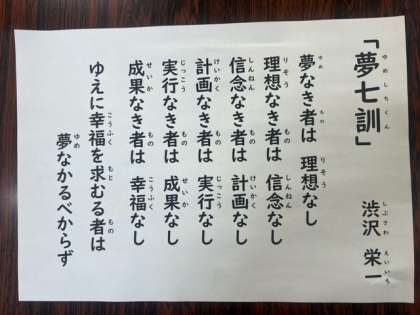 「夢七訓」
渋沢 栄一
夢なき者は 理想なし
理想なき者は 信念なし
信念なき者は 計画なし
計画なき者は 実行なし
実行なき者は 成果なし
成果なき者は 幸福なし
ゆえに幸福を求むる者は
夢なかるべからず